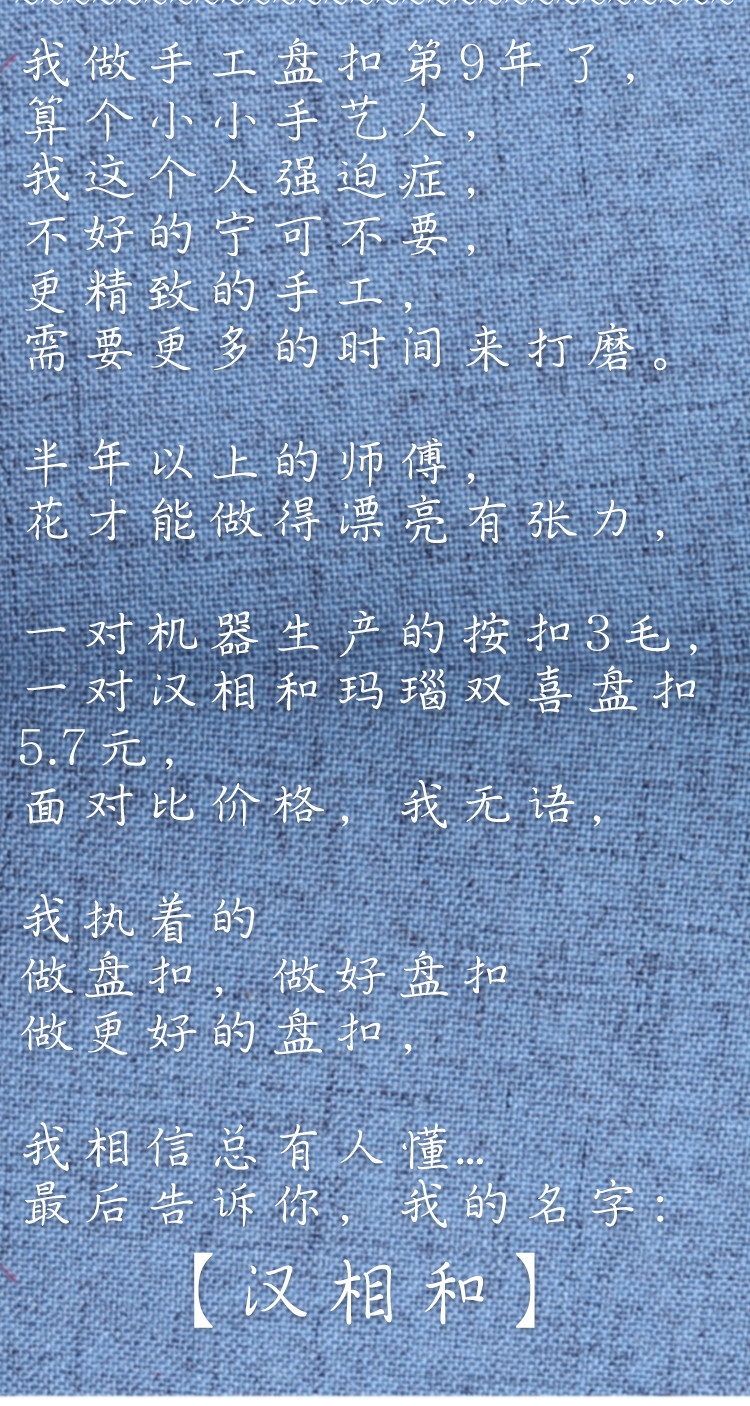 我做手工盘扣第9年了，
算个小小手艺人，
我这个人强迫症，
不好的宁可不要，
更精致的手工，
需要更多的时间来打磨。
半年以上的师傅，
花才能做得漂亮有张力，
一对机器生产的按扣3毛，
一对汉相和玛瑙双喜盘扣
5.7元，
面对比价格，我无语，
我执着的
做盘扣，做好盘扣
做更好的盘扣，
我相信总有人懂...
最后告诉你，我的名字：
【汉相和】